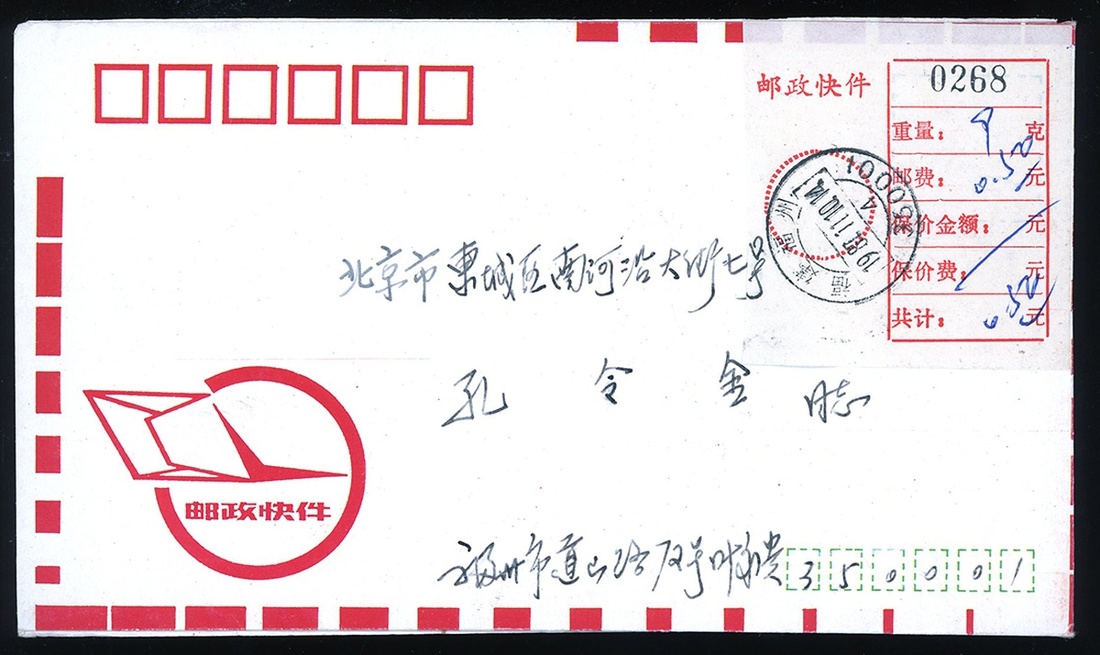 邮政快件
0268
重量：9克
邮费：0.50元
保价金额：元
保价费：元
共计：0.50元
350001
1987.11.10.14
福建 福州
北京市東城区南河沿大街七号
孔令金 同志
邮政快件
福州市道山路
350001